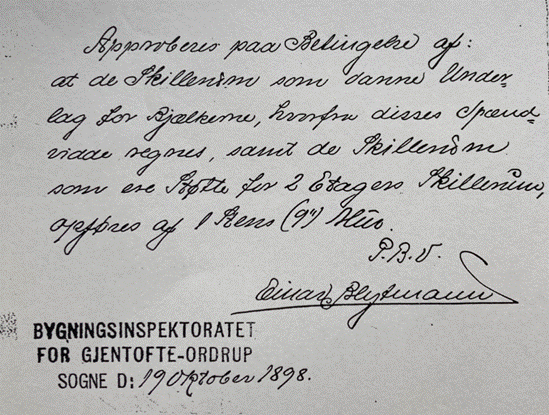 Approberes paa Betingelse af:
at de Skillerum som danne Under-
lag for Bjælkerne, hvorfra disses Spænd-
vidde regnes, samt de Skillerum
som ere Støtte for 2 Etagers Skillerum,
opføres af 1 Stens (9") Mur.
P.B.V.
Einar
BYGNINGSINSPEKTORATET
FOR GJENTOFTE-ORDRUP
SOGNE D: 19 Oktober 1898.